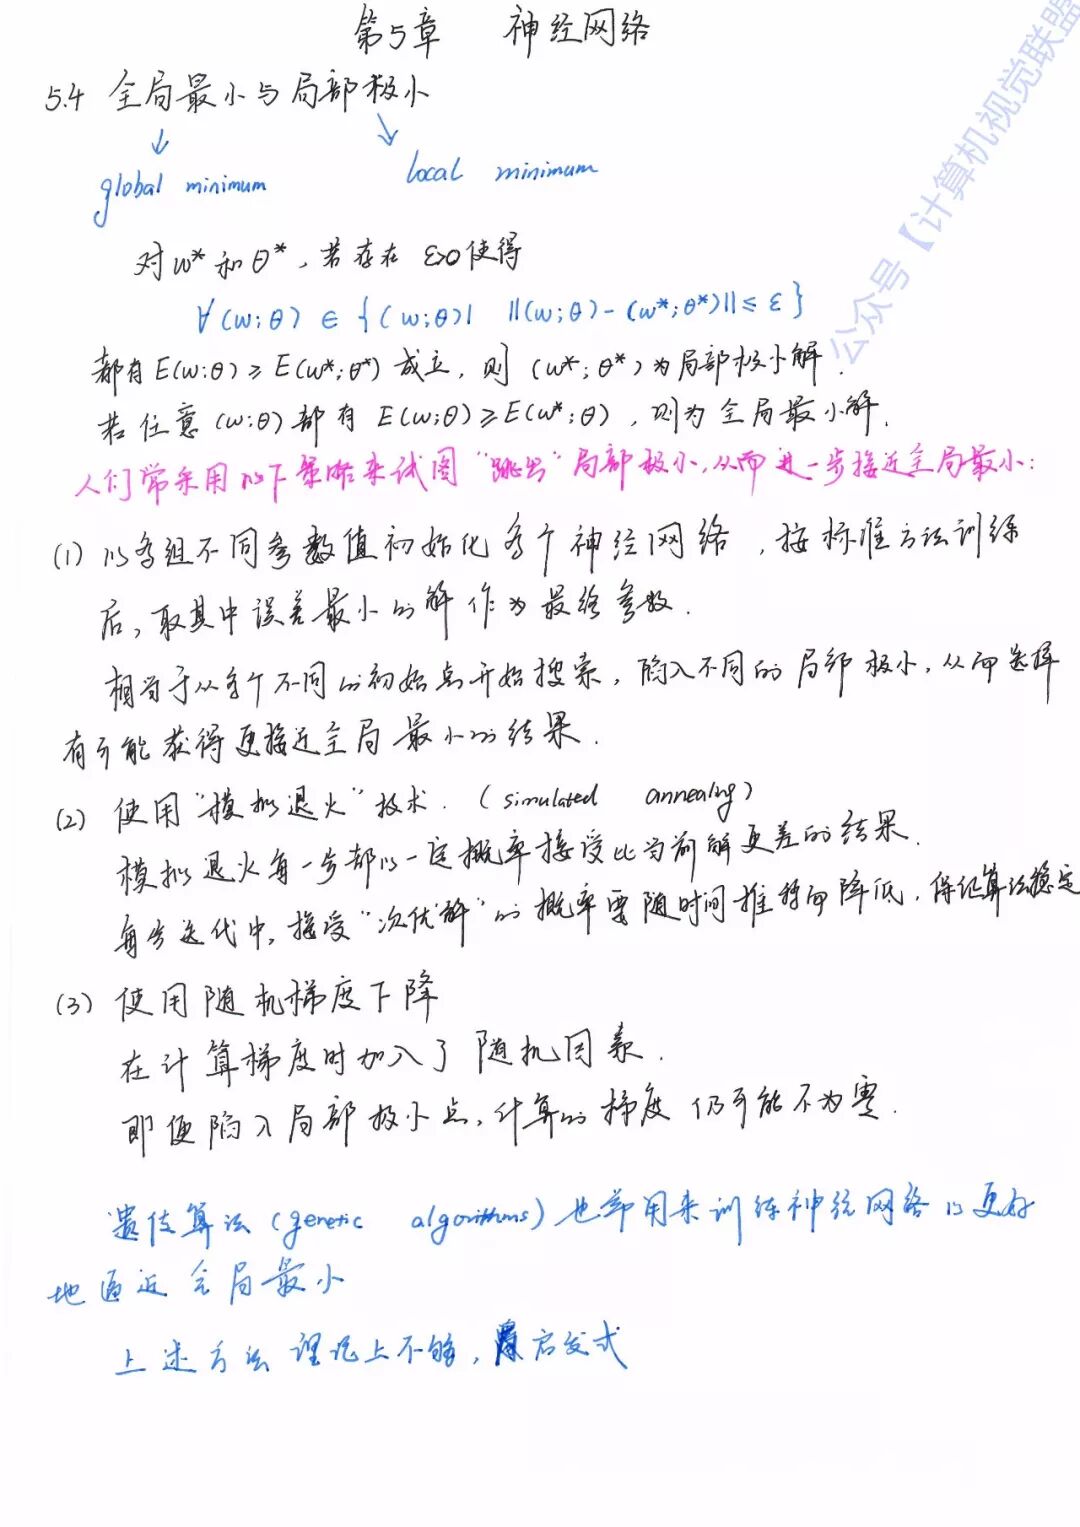 第5章 神经网络
5.4 全局最小与局部极小
global minimum local minimum
对w*和θ*，若存在 ε>0使得
∀(w;θ) ∈ {(w;θ)| ||(w;θ)-(w*;θ*)||≤ε}
都有E(w;θ)≥E(w*;θ*)成立，则(w*;θ*)为局部极小解.
若任意(w;θ)都有E(w;θ)≥E(w*;θ)，则为全局最小解.
人们常采用以下策略来试图"跳出"局部极小，从而进一步接近全局最小：
(1) 以多组不同参数值初始化多个神经网络，按标准方法训练
后，取其中误差最小的解作为最终参数.
相当于从多个不同的初始点开始搜索，陷入不同的局部极小，从而选择
有可能获得更接近全局最小的结果.
(2) 使用"模拟退火"技术.(simulated annealing)
模拟退火每一步都以一定概率接受比当前解更差的结果.
每步迭代中，接受"次优解"的概率要随时间推移而降低，保证算法稳定
(3) 使用随机梯度下降
在计算梯度时加入了随机因素.
即便陷入局部极小点，计算的梯度仍可能不为零.
遗传算法(genetic algorithms)也常用来训练神经网络以更好
地逼近全局最小
上述方法理论上不够，启发式
公众号【计算机视觉联盟